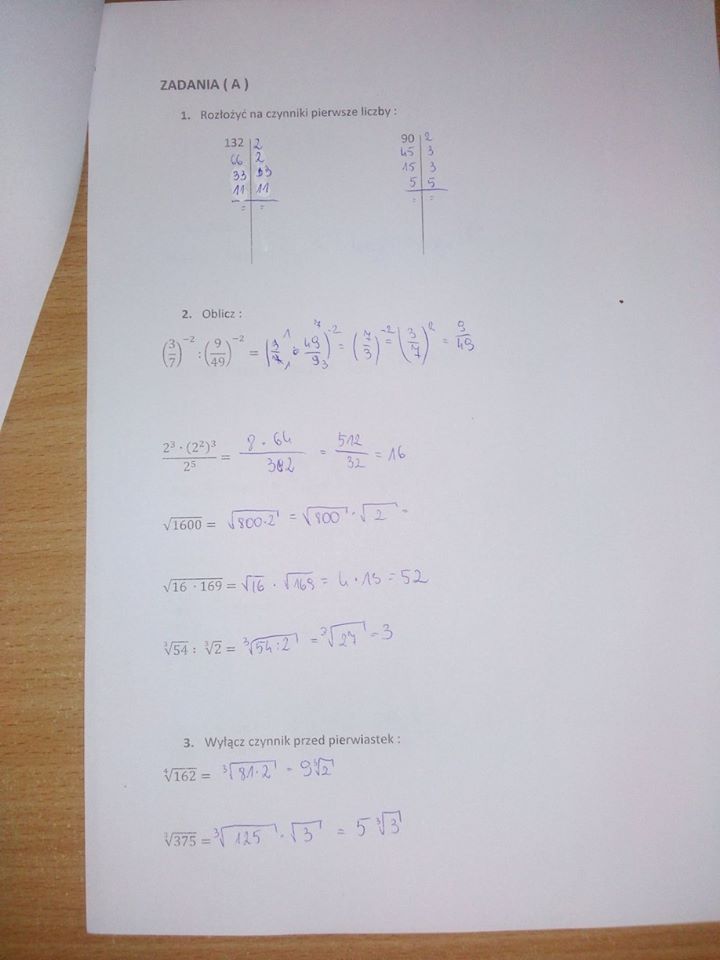 ZADANIA ( A )
1. Rozłożyć na czynniki pierwsze liczby :
132 | 2 90 | 2
66 | 2 45 | 3
33 | 33 15 | 3
11 | 11 5 | 5
= | = = | =
2. Oblicz :
(3/7)⁻² : (9/49)⁻² = (3/7 · 49/9)⁻² = (7/3)⁻² = (3/7)² = 9/49
2³ · (2²)³ / 2⁵ = 8 · 64 / 32 = 512/32 = 16
√1600 = √800·2 = √800 · √2 =
√16 · 169 = √16 · √169 = 4 · 13 = 52
³√54 : ³√2 = ³√54:2 = ³√27 = 3
3. Wyłącz czynnik przed pierwiastek :
⁴√162 = ³√81·2 = 9³√2
³√375 = ³√125 · √3 = 5 ³√3